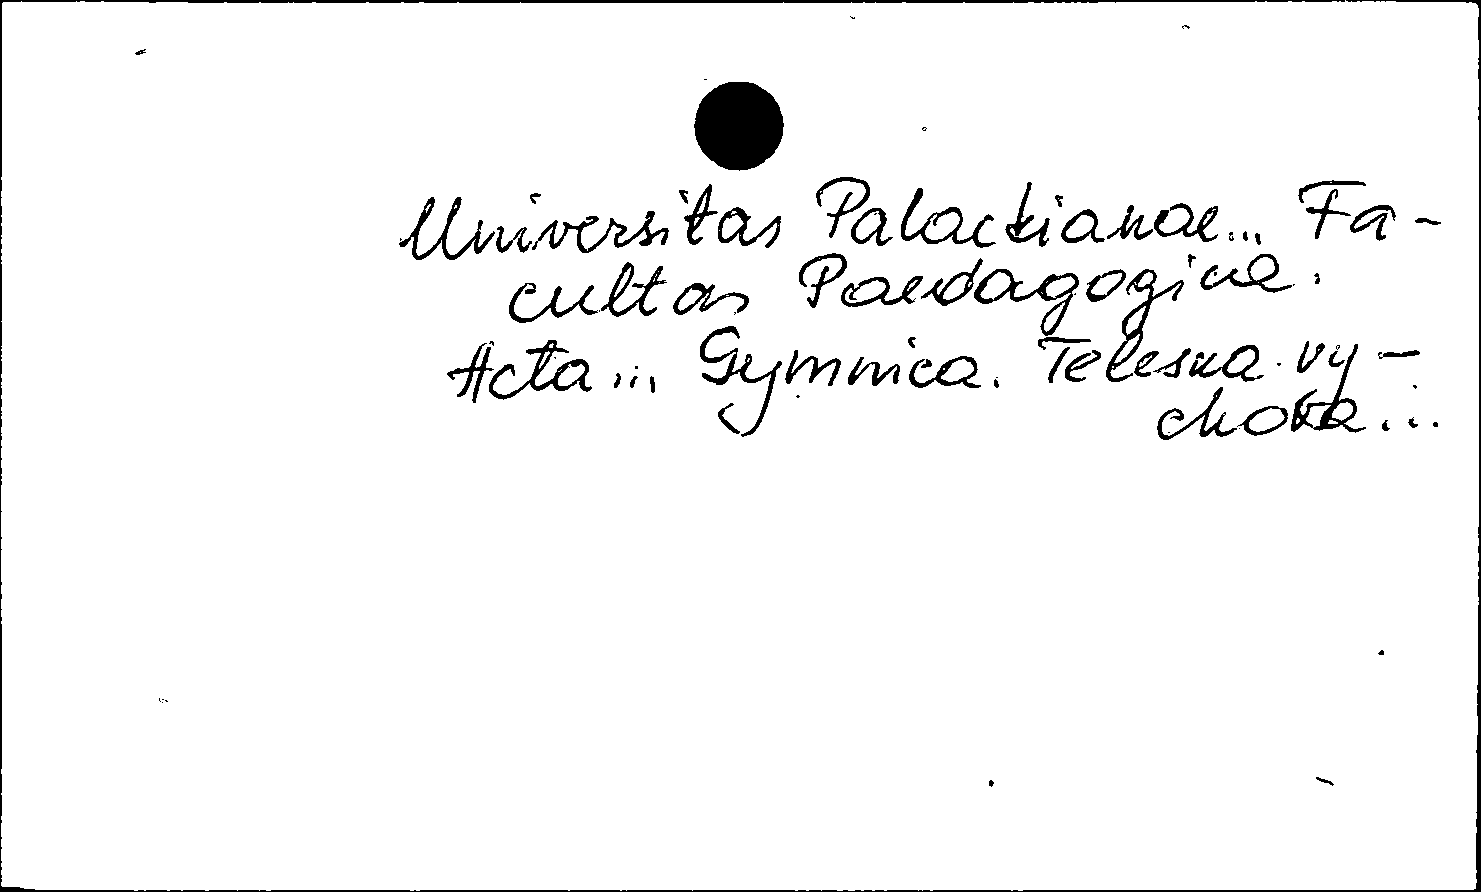 Universitas Palackianae... Fa-
cultas Paedagogica.
Acta... Gymnica. Telesna vy-
chova...